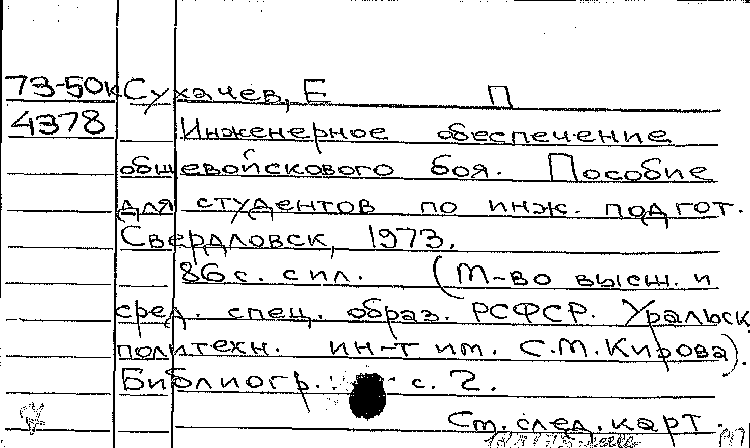 73-50к Сухачев, Е П
4378 Инженерное обеспечение
общевойскового боя. Пособие
для студентов по инж. подгот.
Свердловск, 1973.
86 с. с ил. (М-во высш. и
сред. спец. образ. РСФСР. Уральск.
политехн. ин-т им. С.М.Кирова).
Библиогр.: с. 2.
См. след. карт.